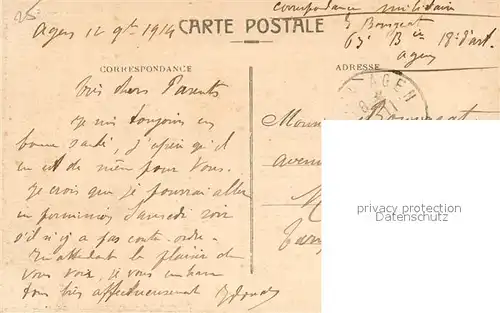 25
correspondance militaire
CARTE POSTALE
E Bourgeat
Agen 12 9bre 1914
65e Bie 18e d'art.
Agen
CORRESPONDANCE
ADRESSE
AGEN
Très chers Parents
Je suis toujours en
bonne santé, j'espère qu'il
en est de même pour Vous.
Je crois que je pourrai aller
en permission Samedi soir
s'il n'y a pas contre-ordre.
En attendant le plaisir de
vous voir, je vous embrasse
tous bien affectueusement
Monsieur Bourgeat
avenue
privacy protection
Datenschutz